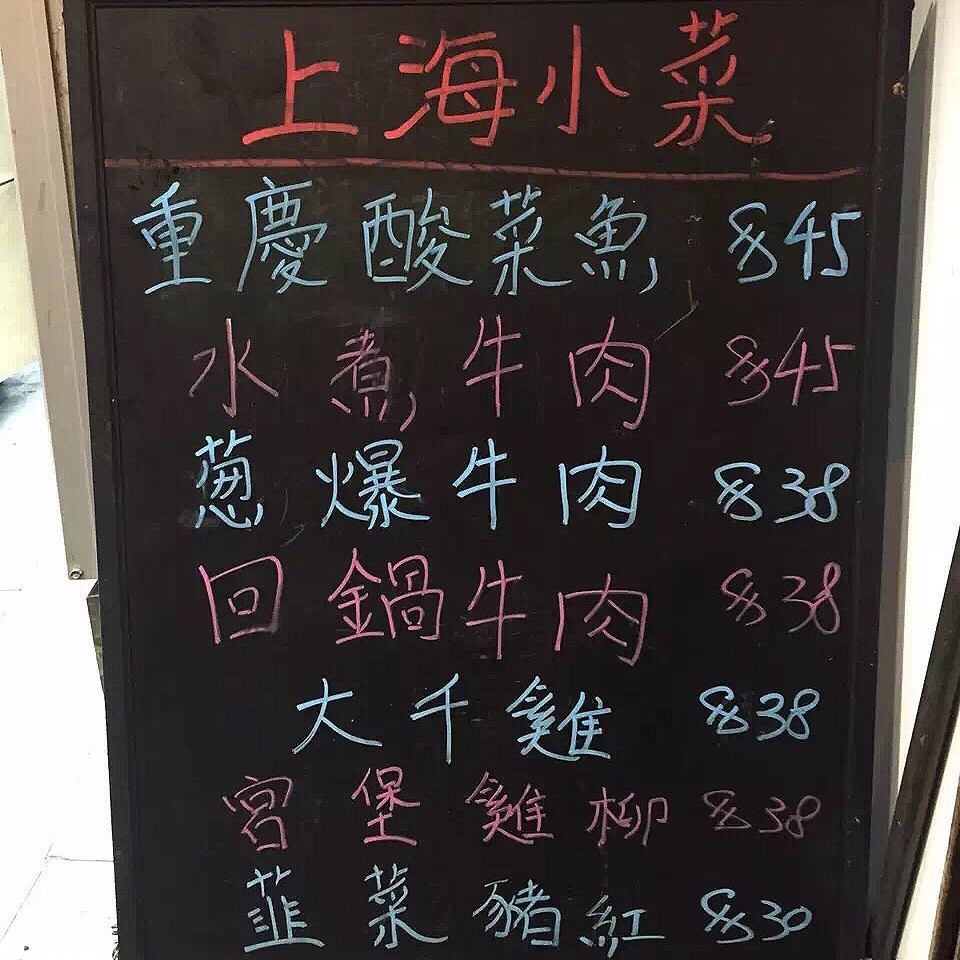 上海小菜
重慶酸菜魚 $45
水煮牛肉 $45
葱爆牛肉 $38
回鍋牛肉 $38
大千雞 $38
宮堡雞柳 $38
韮菜豬紅 $30